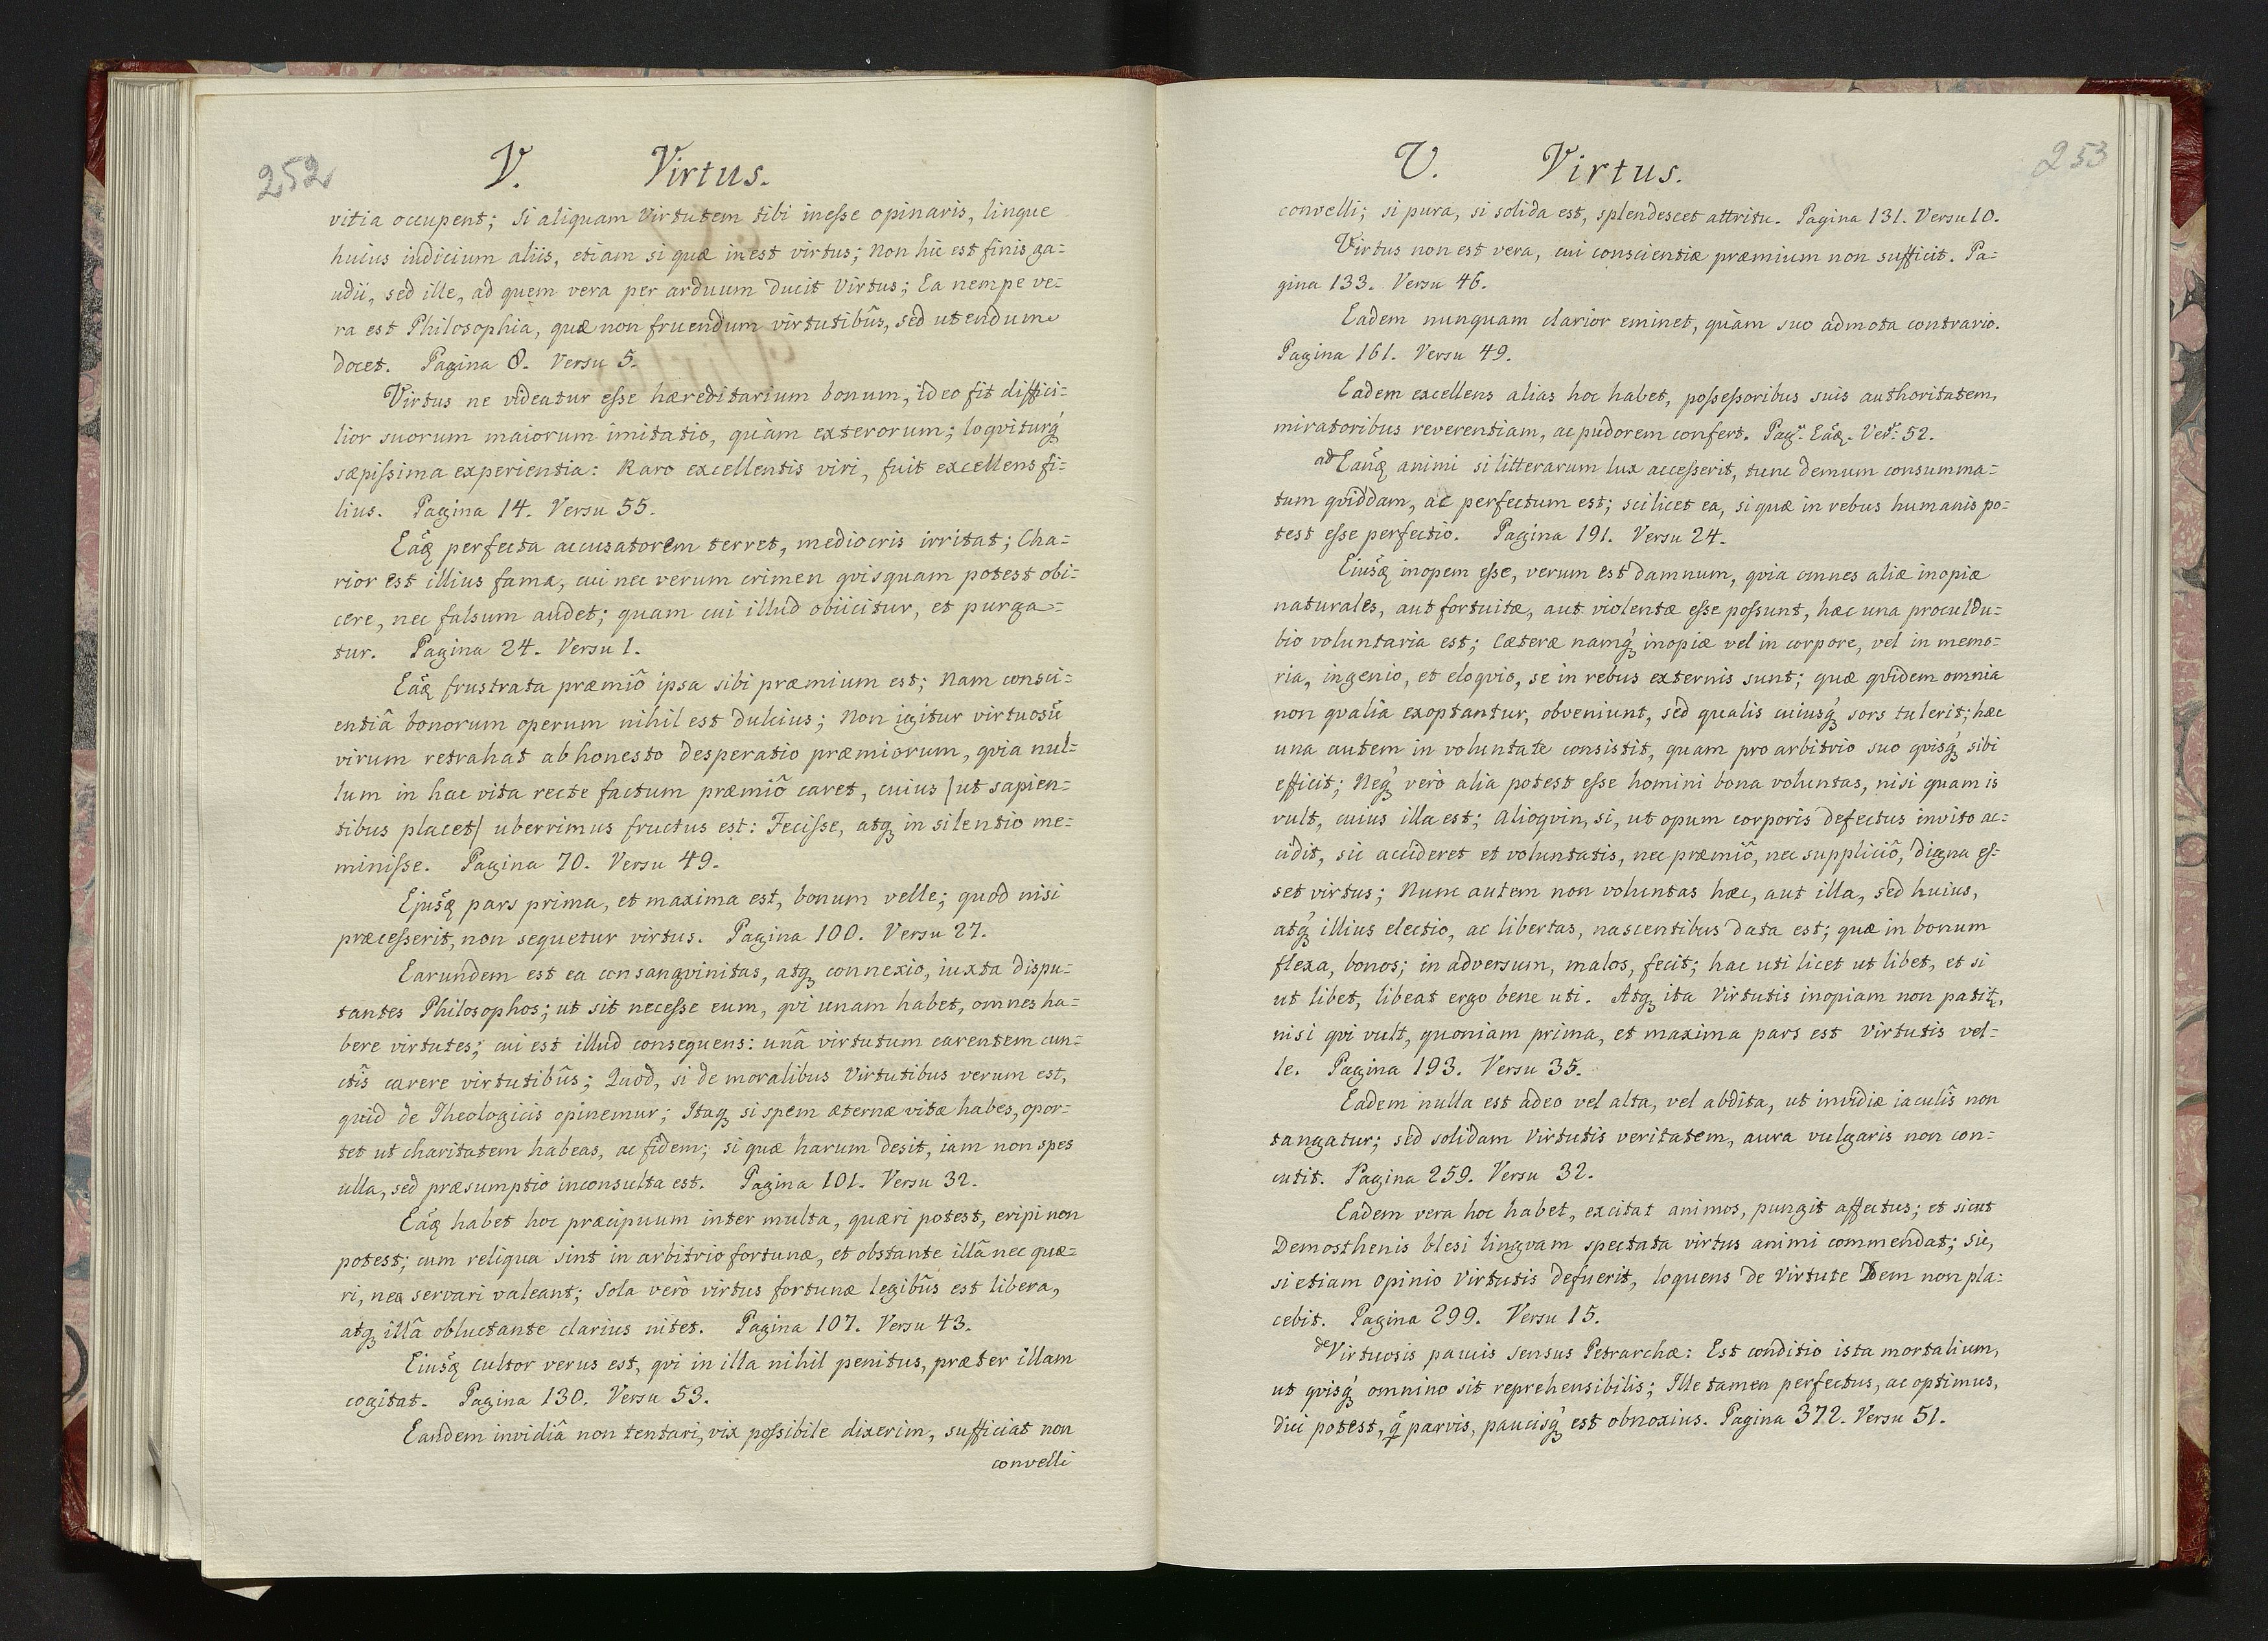 252
V. Virtus.
vitia occupent; Si aliquam Virtutem tibi inesse opinaris, linque
huius indicium aliis, etiam si quæ inest virtus; Non hic est finis ga=
udii, sed ille, ad quem vera per arduum ducit Virtus; Ea nempe ve=
ra est Philosophia, quæ non fruendum virtutibûs, sed utendum
docet. Pagina 8. Versu 5.
Virtus ne videatur esse hæreditarium bonum, ideo fit diffici=
lior suorum maiorum imitatio, quàm exterorum; loqviturq́
sæpissima experientia: Raro excellentis viri, fuit excellens fi=
lius. Pagina 14. Versu 55.
Eãq perfecta accusatorem terret, mediocris irritat; Cha=
rior est illius fama, cui nec verum crimen qvisquam potest obi=
cere, nec falsum audet; quam cui illud obiicitur, et purga=
tur. Pagina 24. Versu 1.
Eãq frustrata præmiô ipsa sibi præmium est; Nam consci=
entiâ bonorum operum nihil est dulcius; Non igitur virtuosũ
virum retrahat ab honesto desperatio præmiorum, qvia nul=
lum in hac vita recte factum præmiô caret, cuius /ut sapien=
tibus placet/ uberrimus fructus est: Fecisse, atq in silentio me=
minisse. Pagina 70. Versu 49.
Ejusq̃ pars prima, et maxima est, bonum velle; quod nisi
præcesserit, non sequetur virtus. Pagina 100. Versu 27.
Earundem est ea consangvinitas, atq connexio, iuxta dispu=
tantes Philosophos; ut sit necesse eum, qvi unam habet, omnes ha=
bere virtutes; cui est illud consequens: unâ virtutum carentem cun=
ctîs carere virtutibûs; Quod, si de moralibus Virtutibus verum est,
quid de Theologicis opinemur; Itaq si spem æternæ vitæ habes, opor=
tet ut charitatem habeas, ac fidem; si quæ harum desit, iam non spes
ulla, sed præsumptio inconsulta est. Pagina 101. Versu 32.
Eãq habet hoc præcipuum inter multa, quæri potest, eripi non
potest; cum reliqua sint in arbitrio fortunæ, et obstante illâ nec quæ=
ri, nec servari valeant; Sola verò virtus fortunæ legibûs est libera,
atq illâ obluctante clarius nitet. Pagina 107. Versu 43.
Eiusq̃ cultor verus est, qvi in illa nihil penitus, præter illam
cogitat. Pagina 130. Versu 53.
Eandem invidiâ non tentari, vix possibile dixerim, sufficiat non
convelli
253
V. Virtus.
convelli; si pura, si solida est, splendescet attritu. Pagina 131. Versu 10.
Virtus non est vera, cui conscientiæ præmium non sufficit. Pa=
gina 133. Versu 46.
Eadem nunquam clarior eminet, quàm suo admota contrario.
Pagina 161. Versu 49.
Eadem excellens alias hoc habet, possessoribus suis authoritatem,
miratoribus reverentiam, ac pudorem confert. Pag. Eãq. Ver: 52.
ad Eanq̃ animi si litterarum lux accesserit, tunc demum consumma=
tum qviddam, ac perfectum est; scilicet ea, si quæ in rebus humanis po=
test esse perfectio. Pagina 191. Versu 24.
Eiusq̃ inopem esse, verum est damnum, qvia omnes aliæ inopiæ
naturales, aut fortuitæ, aut violentæ esse possunt, hæc una procul du=
bio voluntaria est; Cæteræ namq́ inopiæ vel in corpore, vel in memo=
ria, ingenio, et eloqvio, se in rebus externis sunt; quæ qvidem omnia
non qvalia exoptantur, obveniunt, sed qualis cuiusq́ sors tulerit; hæc
una autem in voluntate consistit, quam pro arbitrio suo qvisq́ sibi
efficit; Neq́ verò alia potest esse homini bona voluntas, nisi quam is
vult, cuius illa est; alioqvin, si, ut opum corporis defectus invito ac=
cidit, sic accideret et voluntatis, nec præmiô, nec suppliciô, digna es=
set virtus; Nunc autem non voluntas hæc, aut illa, sed huius,
atq́ illius electio, ac libertas, nascentibus data est; quæ in bonum
flexa, bonos; in adversum, malos, fecit; hac uti licet ut libet, et si
ut libet, libeat ergo bene uti. Atq ita Virtutis inopiam non patit,
nisi qvi vult, quoniam prima, et maxima pars est Virtutis vel=
le. Pagina 193. Versu 35.
Eadem nulla est adeo vel alta, vel abdita, ut invidiæ iaculîs non
tangatur; sed solidam Virtutis veritatem, aura vulgaris non con=
cutit. Pagina 259. Versu 32.
Eadem vera hoc habet, excitat animos, pungit affectus; et sicut
Demosthenis blesi lingvam spectata virtus animi commendat; sic,
si etiam Opinio Virtutis defuerit, loquens de Virtute Idem non pla=
cebit. Pagina 299. Versu 15.
de Virtuosis paucis sensus Petrarchæ: Est conditio ista mortalium,
ut qvisq́ omnino sit reprehensibilis; Ille tamen perfectus, ac optimus,
dici potest, q̃ parvis, paucisq́ est obnoxius. Pagina 372. Versu 51.